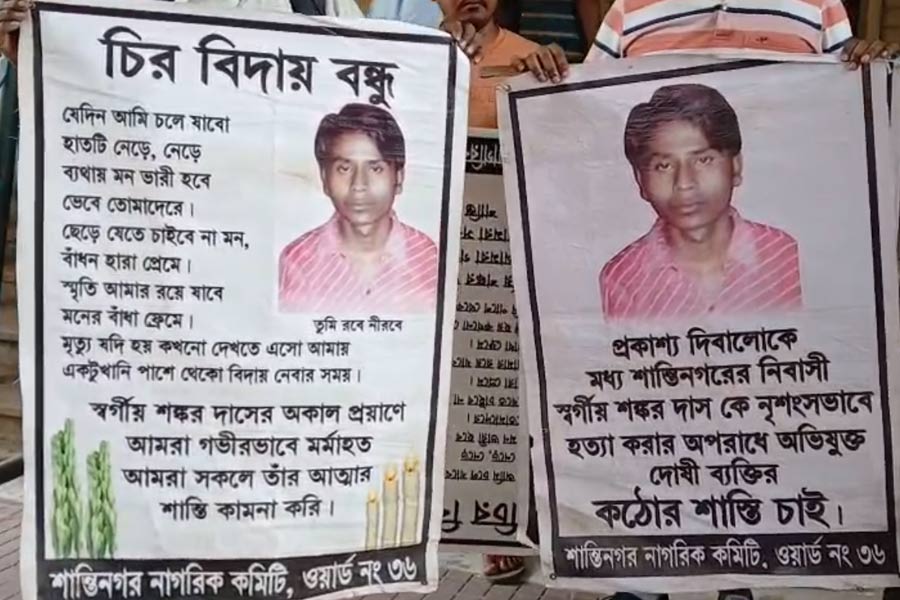 চির বিদায় বন্ধু
যেদিন আমি চলে যাবো
হাতটি নেড়ে, নেড়ে
ব্যথায় মন ভারী হবে
ভেবে তোমাদেরে।
ছেড়ে যেতে চাইবে না মন,
বাঁধন হারা প্রেমে।
স্মৃতি আমার রয়ে যাবে
মনের বাঁধা ফ্রেমে।
মৃত্যু যদি হয় কখনো দেখতে এসো আমায়
একটুখানি পাশে থেকো বিদায় নেবার সময়।
তুমি রবে নীরবে
স্বর্গীয় শঙ্কর দাসের অকাল প্রয়াণে
আমরা গভীরভাবে মর্মাহত
আমরা সকলে তাঁর আত্মার
শান্তি কামনা করি।
শান্তিনগর নাগরিক কমিটি, ওয়ার্ড নং ৩৬
প্রকাশ্য দিবালোকে
মধ্য শান্তিনগরের নিবাসী
স্বর্গীয় শঙ্কর দাস কে নৃশংসভাবে
হত্যা করার অপরাধে অভিযুক্ত
দোষী ব্যক্তির
কঠোর শাস্তি চাই।
শান্তিনগর নাগরিক কমিটি, ওয়ার্ড নং ৩৬